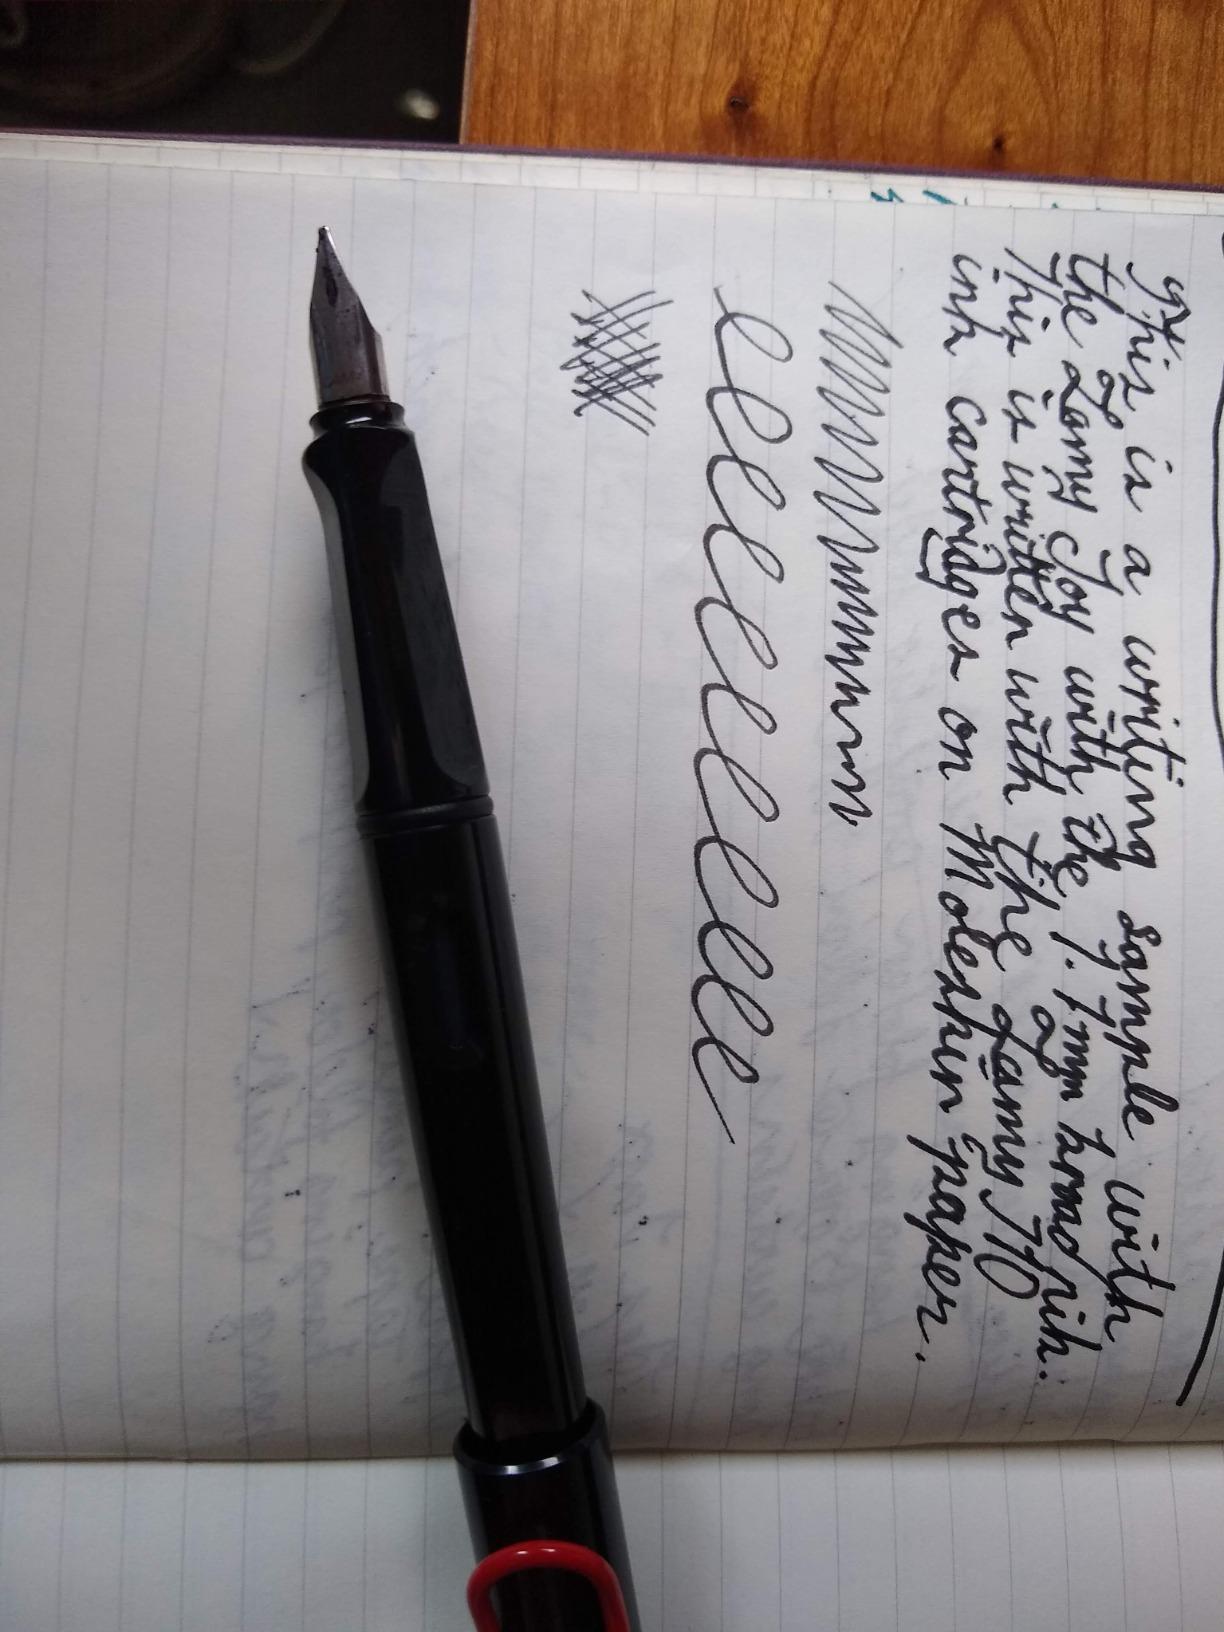 This is a writing sample with
the Lamy Joy with the 1.1mm broad nib.
This is written with the Lamy T10
ink cartridges on Moleskin paper.